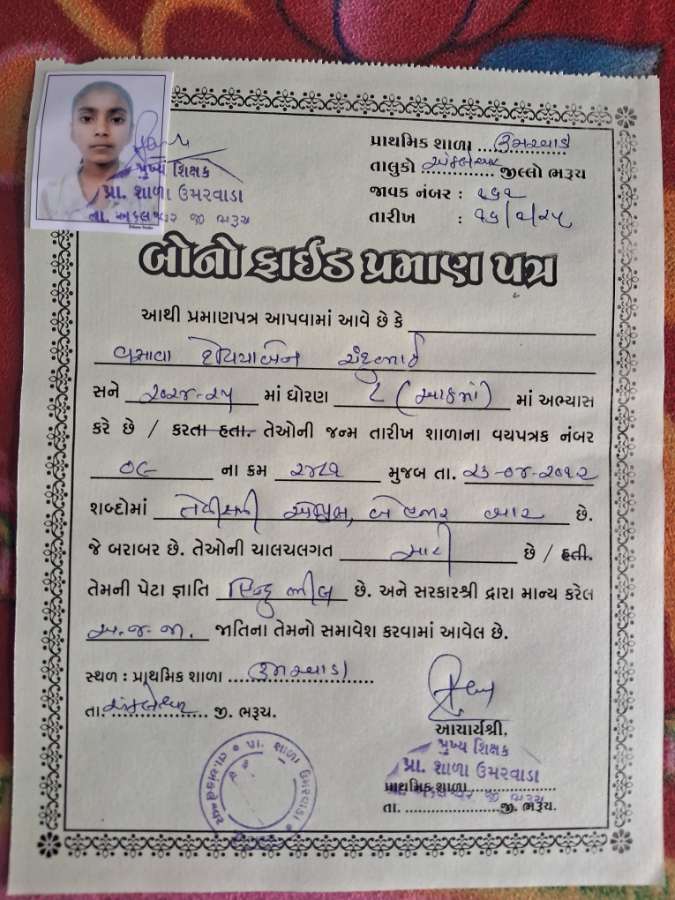 પ્રાથમિક શાળા ઉમરવાડા
તાલુકો અંકલેશ્વર જીલ્લો ભરૂચ
જાવક નંબર : ૧૬૧
તારીખ :
મુખ્ય શિક્ષક
પ્રા. શાળા ઉમરવાડા
તા. અંકલેશ્વર જી ભરૂચ
બોનોફાઈડ પ્રમાણ પત્ર
આથી પ્રમાણપત્ર આપવામાં આવે છે કે
વસાવા ચંદુભાઈ
સને ૨૦૨૪-૨૫ માં ધોરણ ૮ (આઠમાં) માં અભ્યાસ
કરે છે / કરતા હતા. તેઓની જન્મ તારીખ શાળાના વયપત્રક નંબર
૦૯ ના ક્રમ ૨૪૮૧ મુજબ તા. ૨૩-૦૪-૨૦૧૨
શબ્દોમાં ત્રેવીસમી એપ્રિલ, બે હજાર બાર છે.
જે બરાબર છે. તેઓની ચાલચલગત સારી છે / હતી.
તેમની પેટા જ્ઞાતિ હિન્દુ ભીલ છે. અને સરકારશ્રી દ્રારા માન્ય કરેલ
અ.જ.જા. જાતિના તેમનો સમાવેશ કરવામાં આવેલ છે.
સ્થળ : પ્રાથમિક શાળા ઉમરવાડા
તા. અંકલેશ્વર જી. ભરૂચ.
આચાર્યશ્રી,
મુખ્ય શિક્ષક
પ્રા. શાળા ઉમરવાડા
પ્રાથમિક શાળા
તા. જી. ભરૂચ.
પ્રા. શાળા ઉમરવાડા